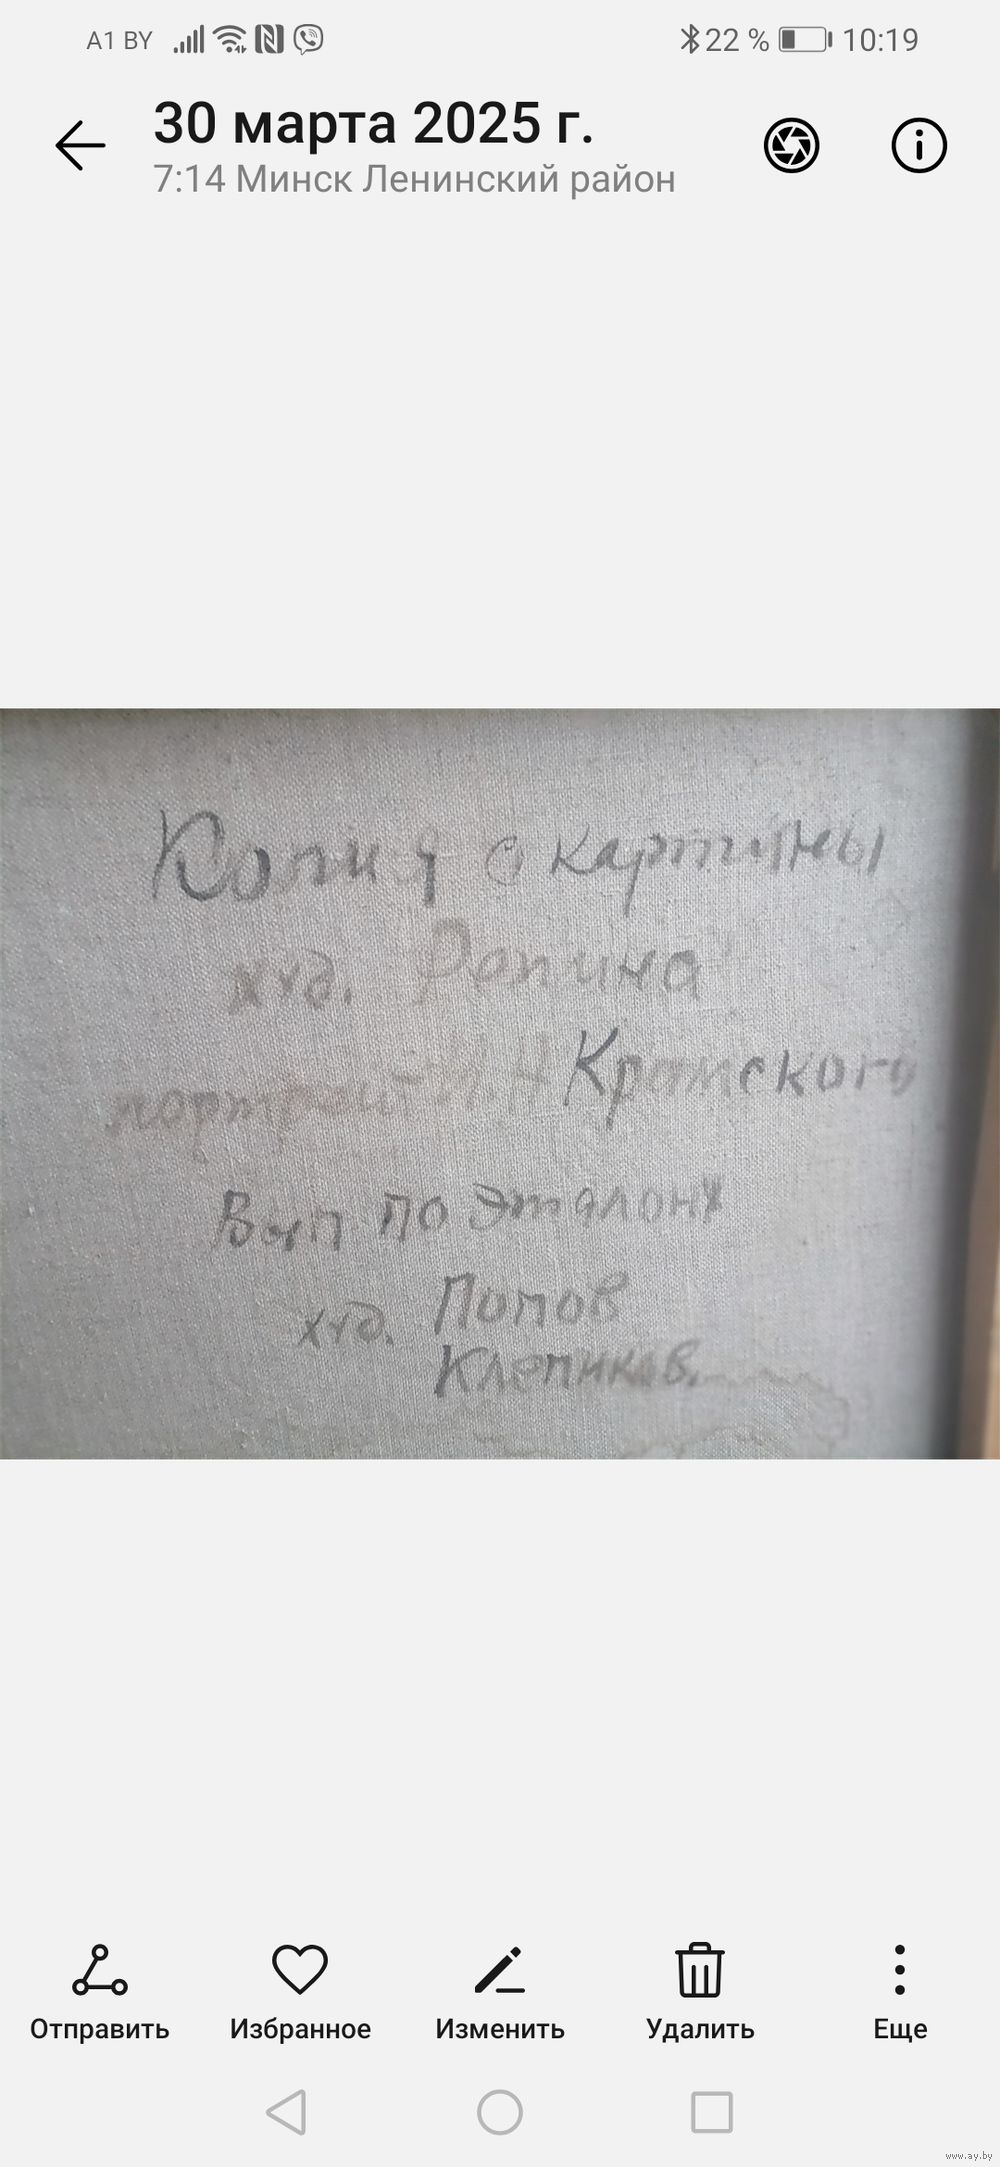 A1 BY 22 % 10:19
30 марта 2025 г.
7:14 Минск Ленинский район
Копия с картины
худ. "Репина"
портрет Крамского
Вып по эталону
худ. Попов
Клепиков.
Отправить Избранное Изменить Удалить Еще
www.ay.by